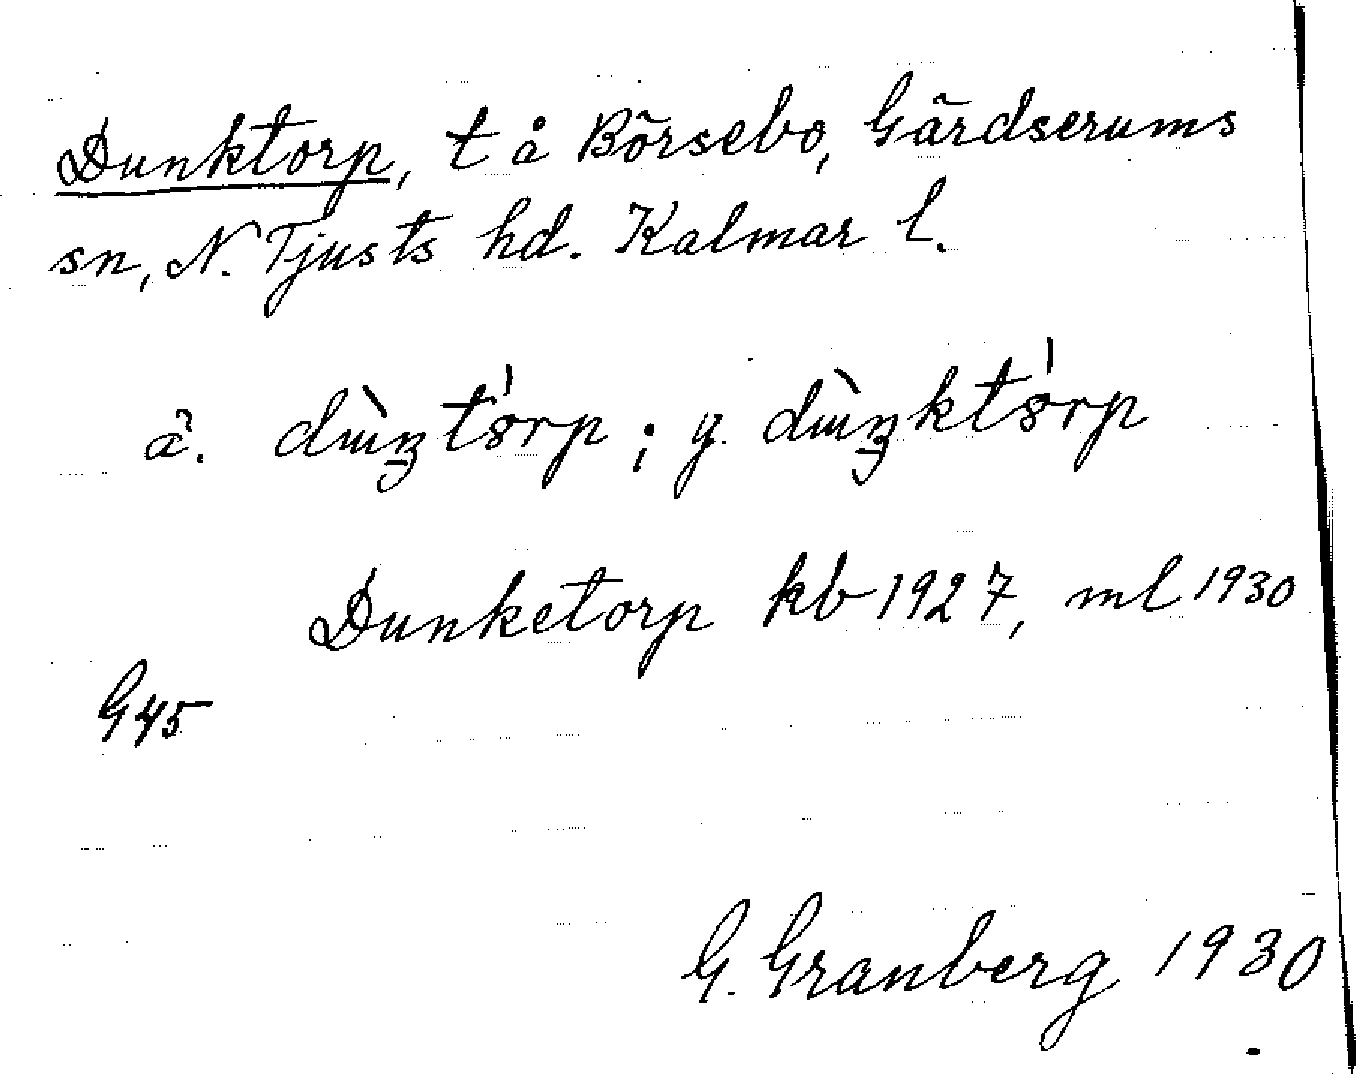 Dunktorp, t å Börsebo, Gärdserums
sn, N. Tjusts hd. Kalmar l.
ä. dɯ̀ŋtórp; y. dɯ̀ŋktórp
Dunketorp kb 1927, ml 1930
G 45
G. Granberg 1930